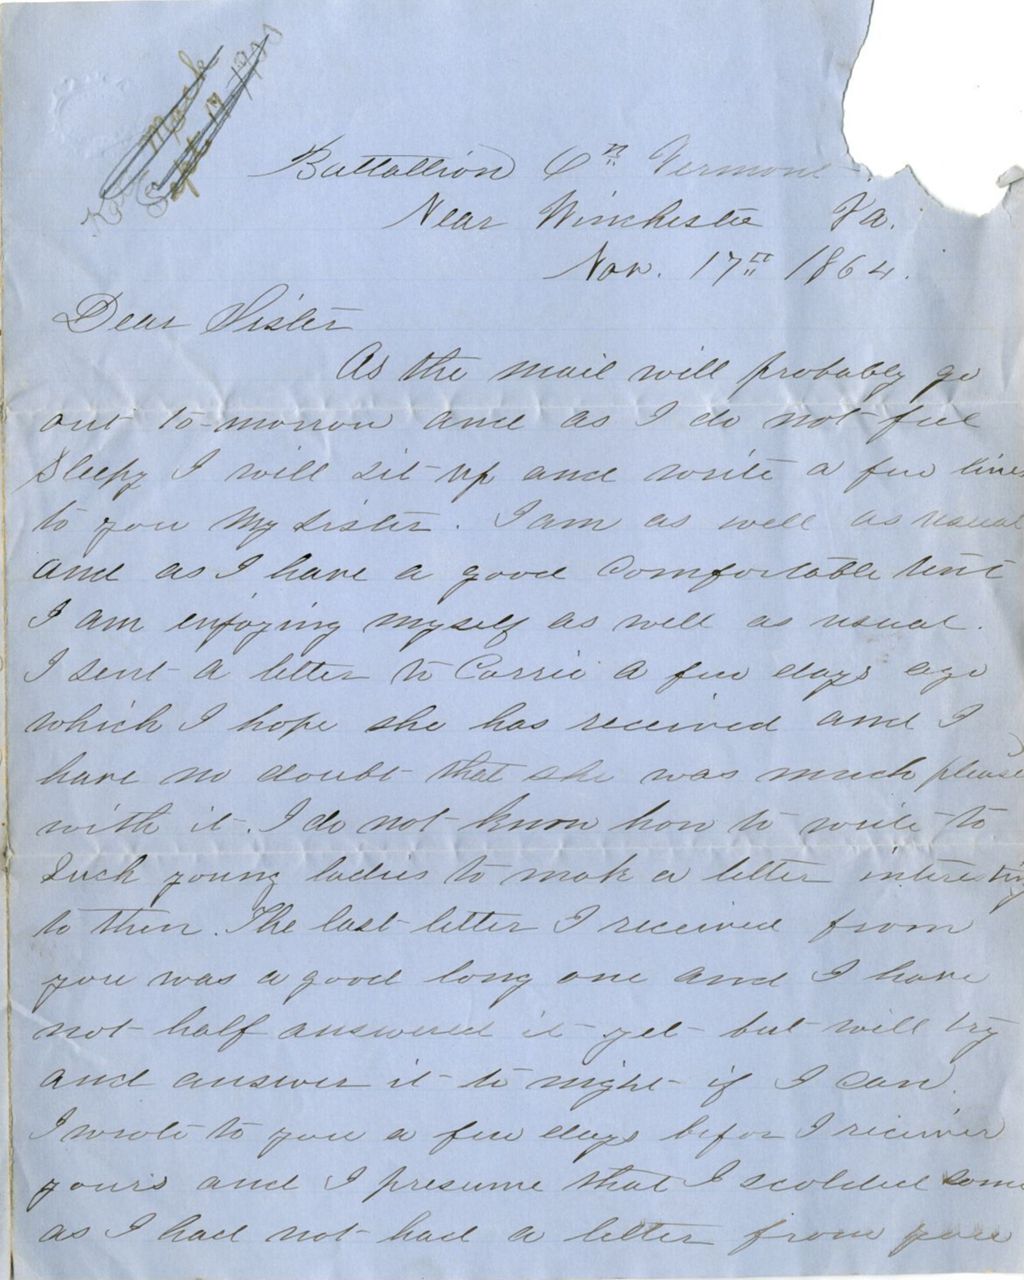 Mack
Sept. 17, 1933
Battallion 6th Vermont.
Near Winchester Va.
Nov. 17th 1864.
Dear Sister
As the mail will probably go
out to-morrow and as I do not feel
sleepy I will sit up and write a few lines
to you my sister. I am as well as usual
and as I have a good comfortable tent
I am enjoying myself as well as usual.
I sent a letter to Carrie a few days ago
which I hope she has received and I
have no doubt that she was much please
with it. I do not know how to write to
such young ladies to make a letter interesting
to them. The last letter I received from
you was a good long one and I have
not half answered it yet but will try
and answer it to night if I can.
I wrote to you a few days befor I receiver
yours and I presume that I scolded some
as I had not had a letter from you